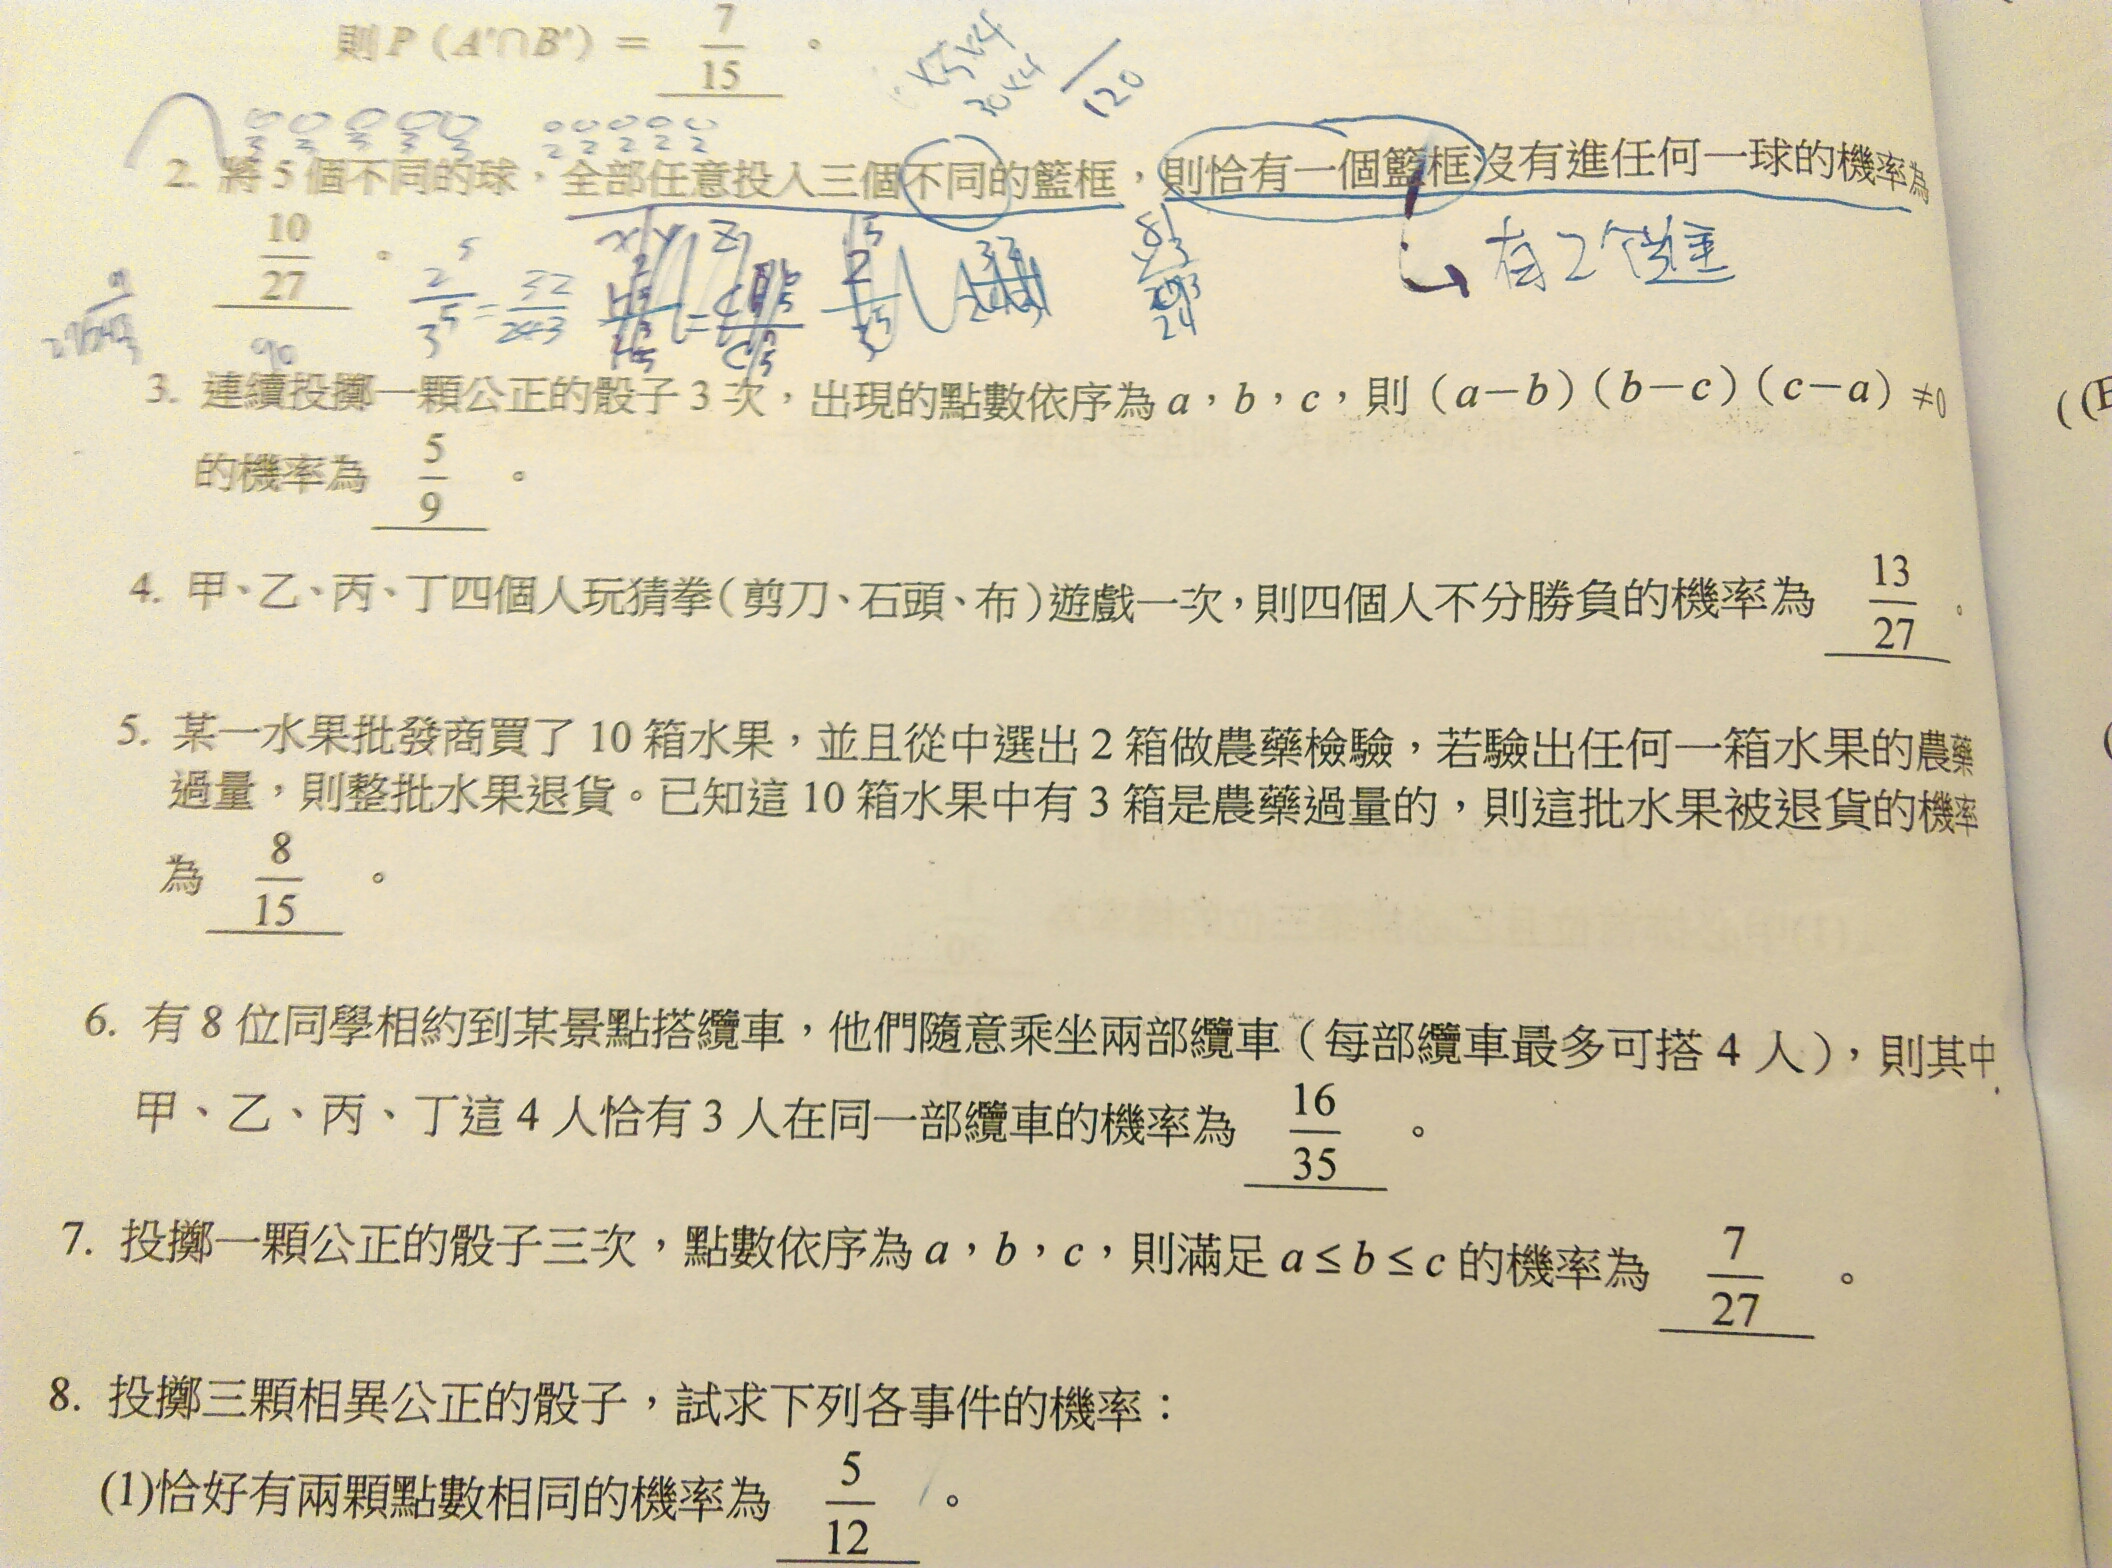 則 P (A'∩B') = 7/15 。
x5x4
30x4
/120
3 3 3 3 3 2 2 2 2 2
2. 將 5 個不同的球,全部任意投入三個不同的籃框,則恰有一個籃框沒有進任何一球的機率為
10/27 。
2^5/3^5 = 32/243
→ 有2個進
90
3. 連續投擲一顆公正的骰子 3 次,出現的點數依序為 a,b,c,則 (a−b)(b−c)(c−a) ≠0
的機率為 5/9 。
4. 甲、乙、丙、丁四個人玩猜拳(剪刀、石頭、布)遊戲一次,則四個人不分勝負的機率為 13/27 。
5. 某一水果批發商買了 10 箱水果,並且從中選出 2 箱做農藥檢驗,若驗出任何一箱水果的農藥
過量,則整批水果退貨。已知這 10 箱水果中有 3 箱是農藥過量的,則這批水果被退貨的機率
為 8/15 。
6. 有 8 位同學相約到某景點搭纜車,他們隨意乘坐兩部纜車(每部纜車最多可搭 4 人),則其中
甲、乙、丙、丁這 4 人恰有 3 人在同一部纜車的機率為 16/35 。
7. 投擲一顆公正的骰子三次,點數依序為 a,b,c,則滿足 a≤b≤c 的機率為 7/27 。
8. 投擲三顆相異公正的骰子,試求下列各事件的機率:
(1)恰好有兩顆點數相同的機率為 5/12 。